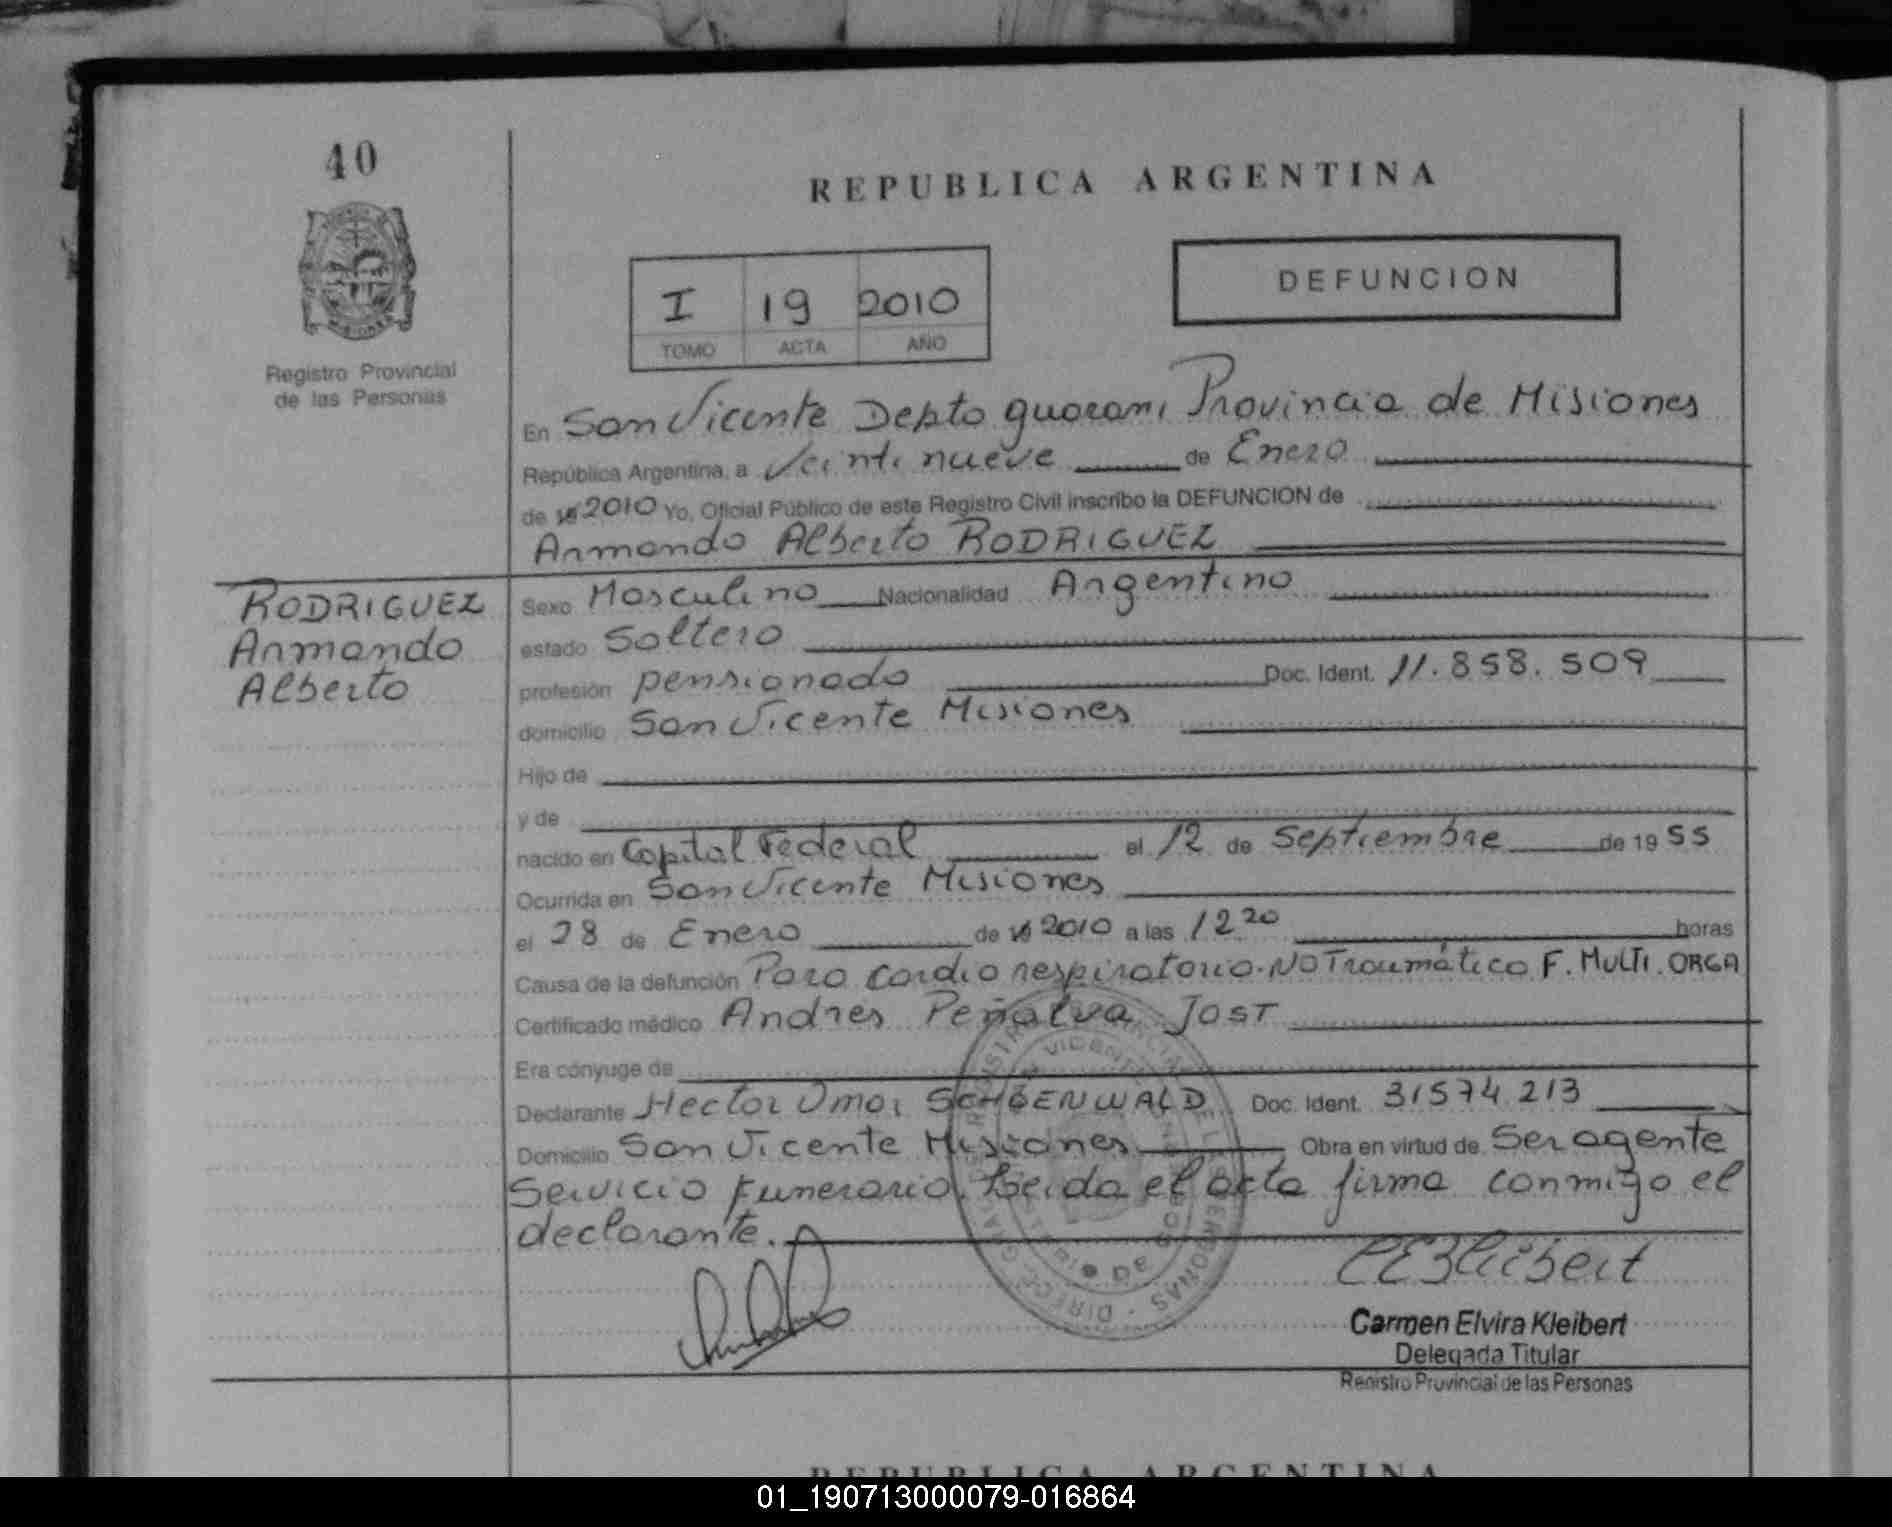 40
REPUBLICA ARGENTINA
I 19 2010
TOMO ACTA AÑO
DEFUNCION
Registro Provincial
de las Personas
En San Vicente Depto guarani Provincia de Misiones
República Argentina, a Veinti nueve de Enero
de 19 2010 Yo, Oficial Público de este Registro Civil inscribo la DEFUNCION de
Armando Alberto RODRIGUEZ
RODRIGUEZ
Armando
Alberto
Sexo Masculino Nacionalidad Argentino
estado Soltero
profesión pensionado Doc. Ident. 11.858.509
domicilio San Vicente Misiones
Hijo de
y de
nacido en Capital Federal el 12 de Septiembre de 19 55
Ocurrida en San Vicente Misiones
el 28 de Enero de 19 2010 a las 12 20 horas
Causa de la defunción Paro cardio respiratorio. NO Traumático F. MULTI. ORGA
Certificado médico Andres Peñalva JOST
Era cónyuge de
Declarante Hector Omar SCHOENWALD Doc. Ident. 31574.213
Domicilio San Vicente Misiones Obra en virtud de Ser agente
Servicio funerario. Leida el acta firma conmigo el
declarante.
CEKleibert
Carmen Elvira Kleibert
Delegada Titular
Registro Provincial de las Personas
REPUBLICA ARGENTINA
01_190713000079-016864